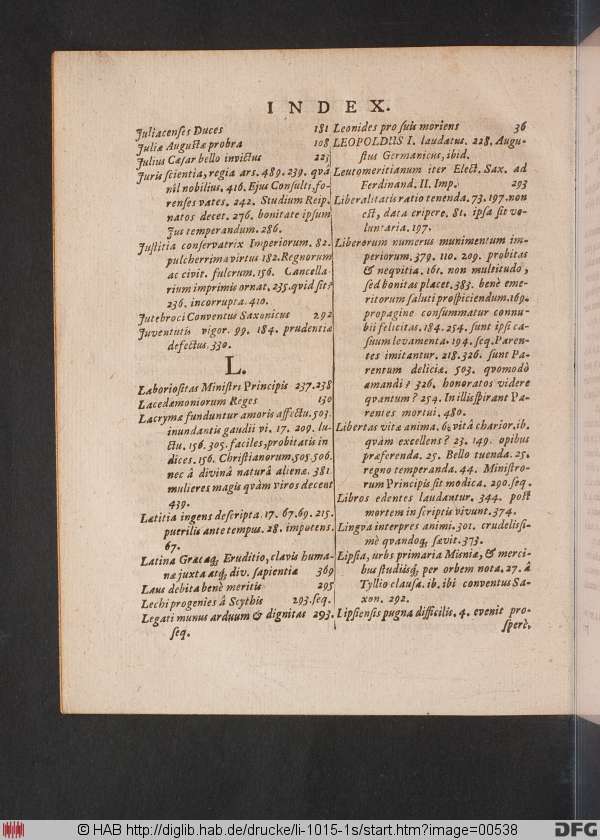 INDEX.
Juliacenses Duces 181
Juliæ Augustæ probra 108
Julius Cæsar bello invictus 223
Juris scientia, regia ars. 489. 239. quâ
nîl nobilius, 416. Ejus Consulti, fo-
renses vates. 242. Studium Reip.
natos decet. 276. bonitate ipsum
Jus temperandum. 286.
Justitia conservatrix Imperiorum. 82.
pulcherrima virtus 182. Regnorum
ac civit. fulcrum. 156. Cancella-
rium imprimis ornat. 235. quid sit?
236. incorrupta. 410.
Jutebroci Conventus Saxonicus 292
Juventutis vigor. 99. 184. prudentia
defectus. 330.
L.
Laboriositas Ministri Principis 237.238
Lacedæmoniorum Reges 130
Lacrymæ funduntur amoris affectu. 503.
inundantis gaudii vi. 17. 209. lu-
ctu. 156. 305. faciles, probitatis in
dices. 156. Christianorum, 505. 506.
nec â divinâ naturâ alienæ. 381
mulieres magis quàm viros decent
439.
Lætitia ingens descripta. 17. 67. 69. 215.
puerilis ante tempus. 28. impotens.
67.
Latina Græcaq; Eruditio, clavis huma-
næ juxta atq; div. sapientiæ 369
Laus debita benè meritis 295
Lechi progenies â Scythis 293. seq.
Legati munus arduum & dignitas 293.
seq.
Leonides pro suis moriens 36
LEOPOLDUS I. laudatus. 228. Augu-
stus Germanicus, ibid.
Leutomeritianum iter Elect. Sax. ad
Ferdinand. II. Imp. 293
Liberalitatis ratio tenenda. 73. 197. non
est, data eripere. 81. ipsa sit vo-
luntaria. 197.
Liberorum numerus munimentum im-
periorum. 379. 110. 209. probitas
& neqvitia. 161. non multitudo,
sed bonitas placet. 383. benè eme-
ritorum saluti prospiciendum. 169.
propagine consummatur connu-
bii felicitas. 184. 254. sunt ipsi ca-
suum levamenta. 194. seq. Paren-
tes imitantur. 218. 326. sunt Pa-
rentum deliciæ. 503. quomodò
amandi? 326. honoratos videre
quantum? 254. In illis spirant Pa-
rentes mortui. 480.
Libertas vitæ anima. 6; vitâ charior. ib.
quàm excellens? 23. 149. opibus
præferenda. 25. Bello tuenda. 25.
regno temperanda. 44. Ministro-
rum Principis sit modica. 290. seq.
Libros edentes laudantur. 344. post
mortem in scriptis vivunt. 374.
Lingva interpres animi. 301. crudelissi-
mè quandoq; sævit. 373.
Lipsia, urbs primaria Misniæ, & merci-
bus studiisq; per orbem nota. 27. â
Tyllio clausa. ib. ibi conventus Sa-
xon. 292.
Lipsiensis pugna difficilis. 4. evenit pro-
sperè,
© HAB http://diglib.hab.de/drucke/li-1015-1s/start.htm?image=00538
DFG